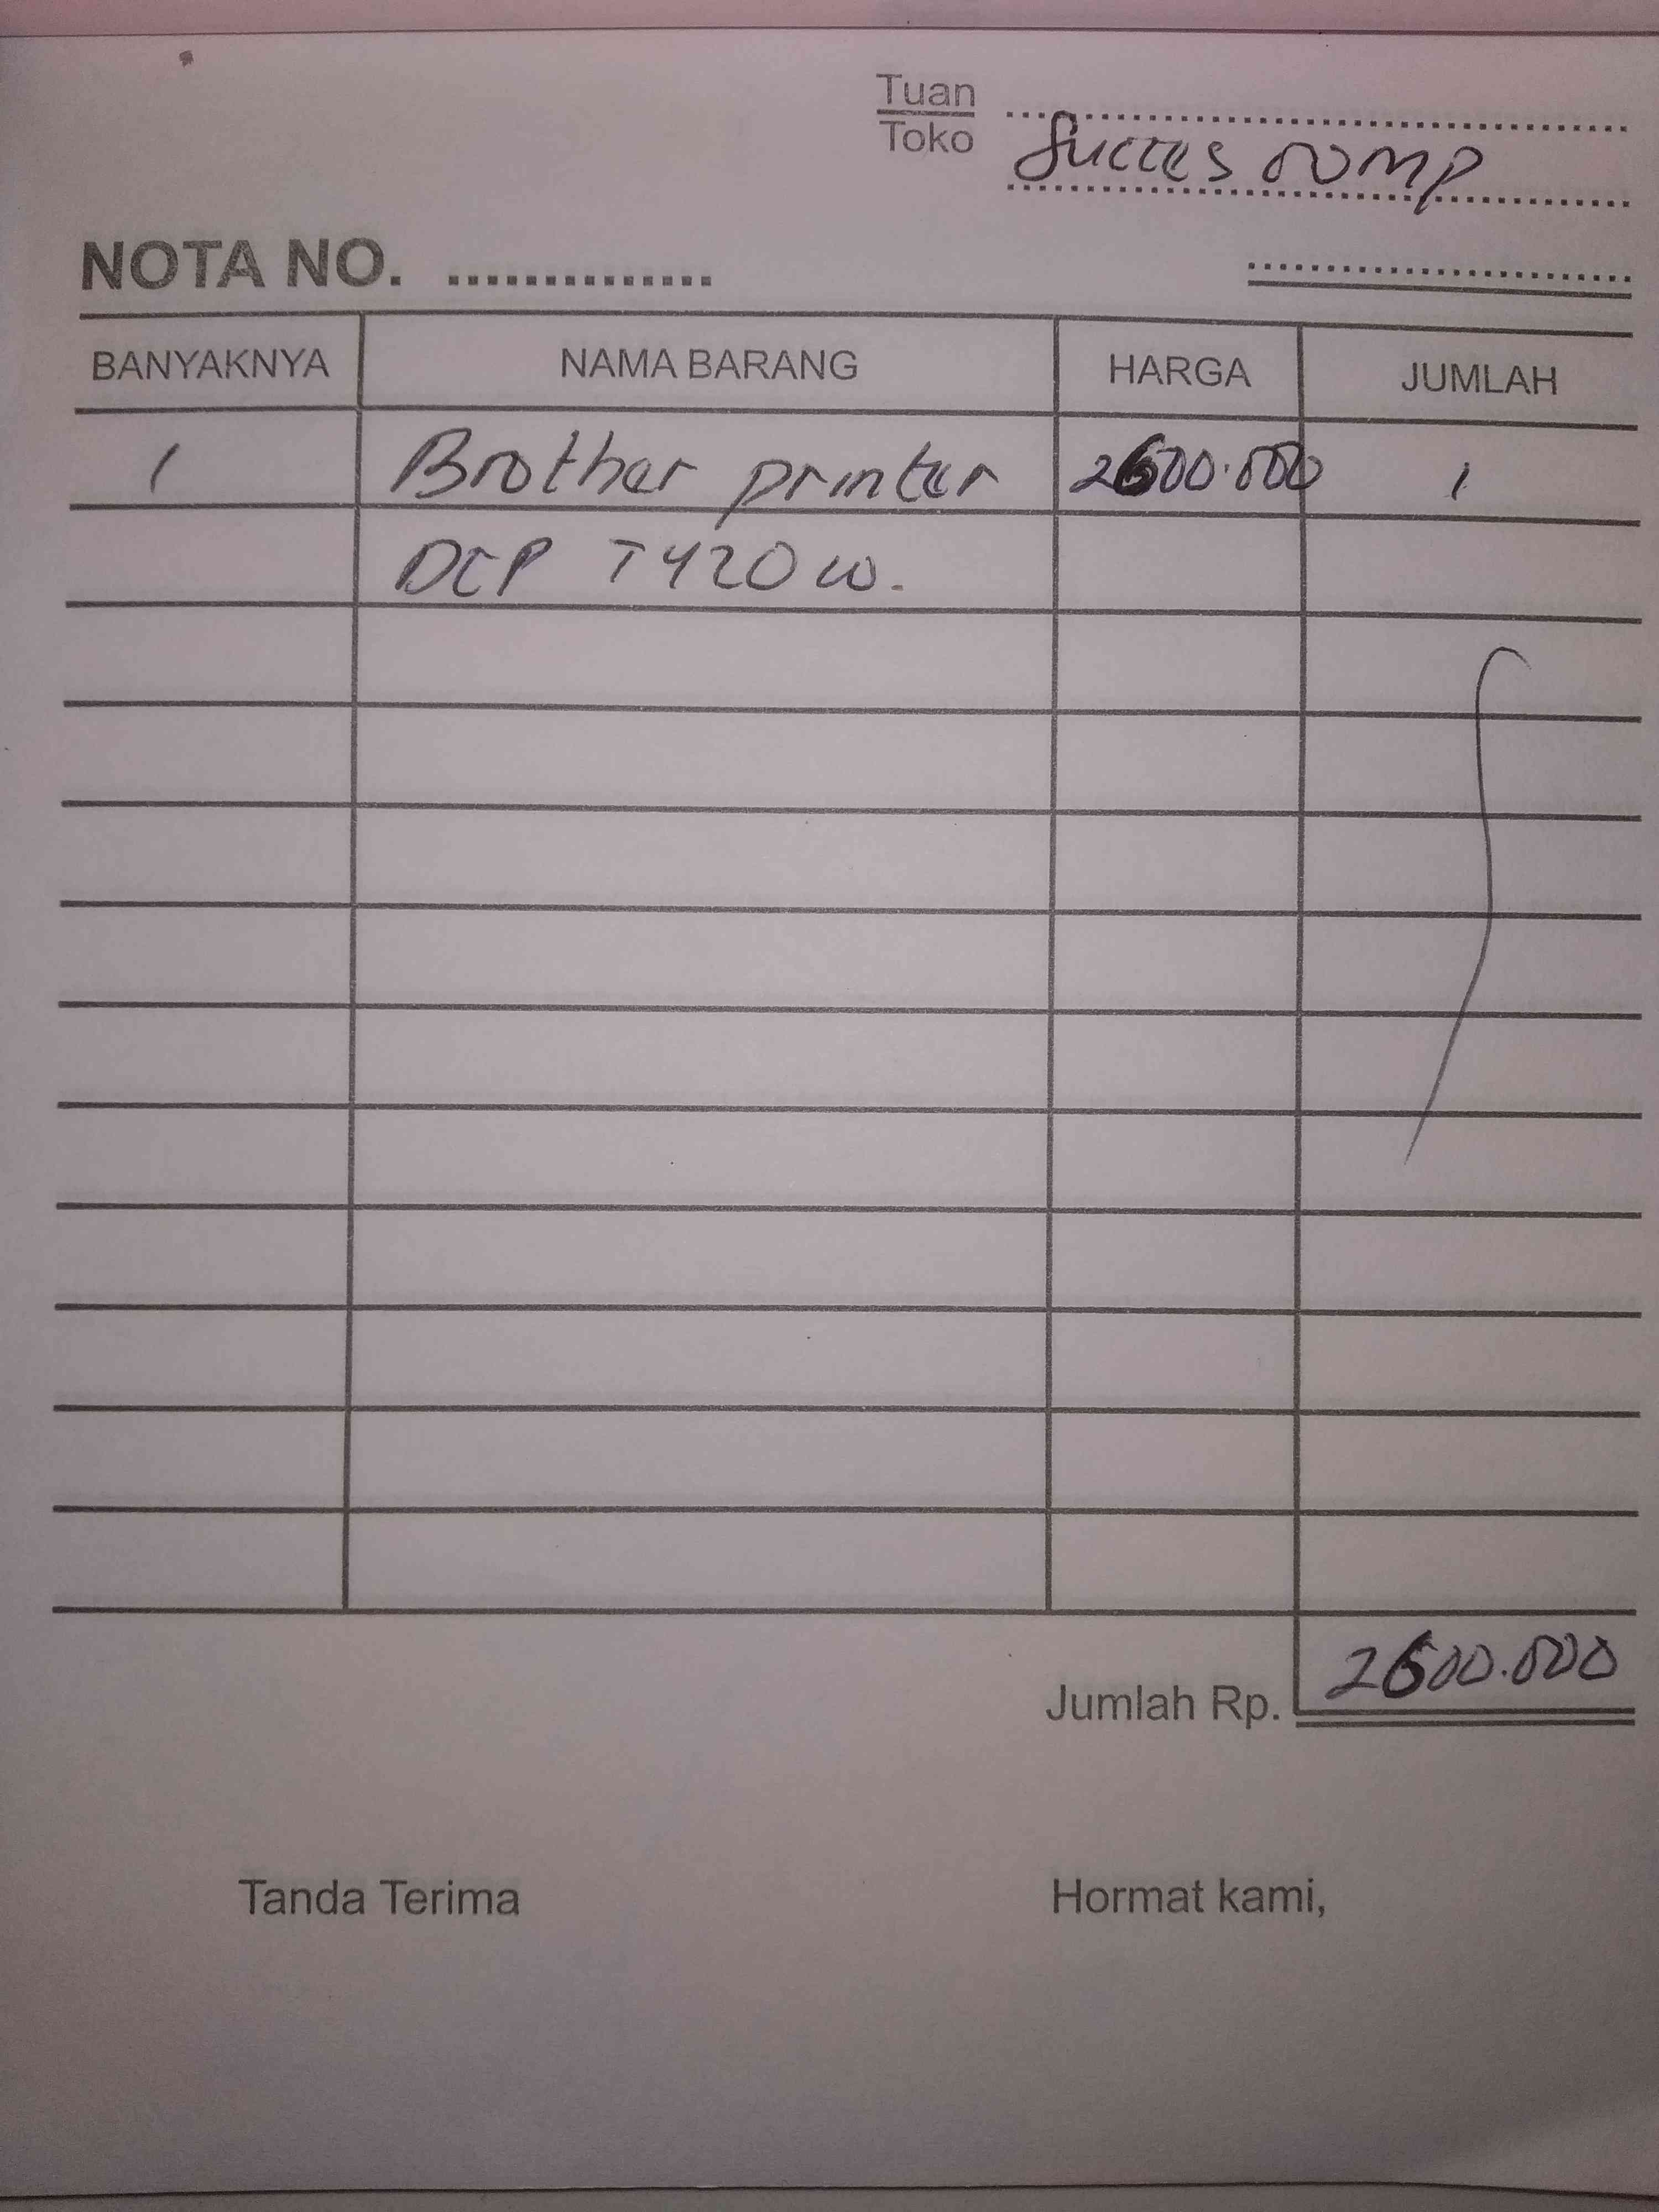 Tuan
Toko
Succes comp
NOTA NO. ..............
BANYAKNYA NAMA BARANG HARGA JUMLAH
1 Brother printer 2600.000 1
DCP T420w.
Jumlah Rp. 2600.000
Tanda Terima Hormat kami,